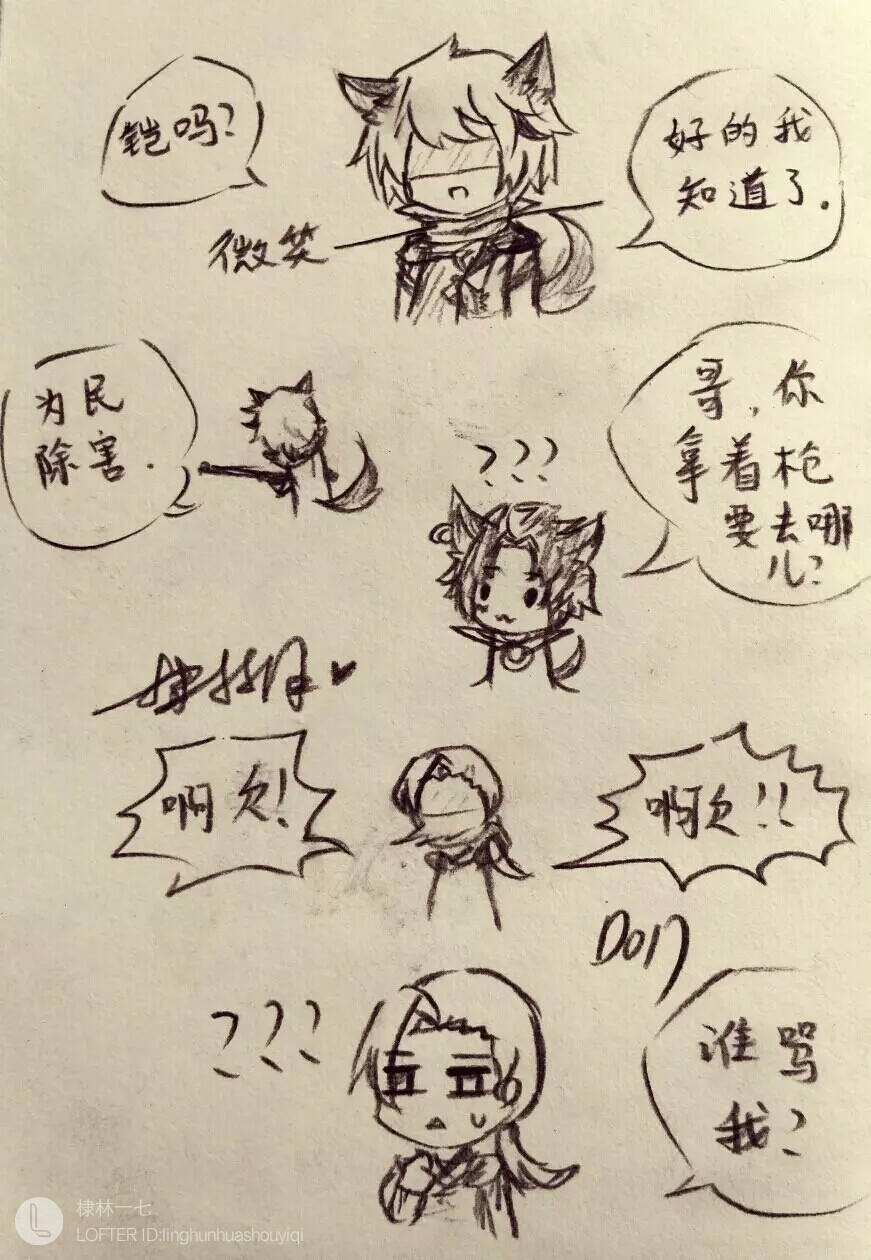 铠吗?
好的我
知道了.
微笑
为民
除害.
哥,你
拿着枪
要去哪
儿?
???
啊欠!
啊欠!!
???
谁骂
我?
棣林一七
LOFTER ID:linghunhuashouyiqi